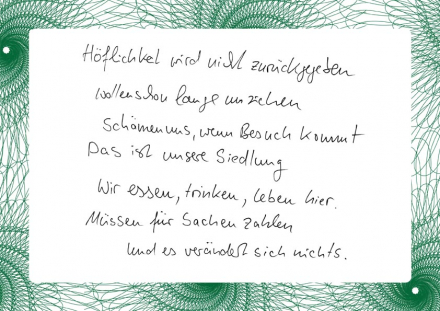 Höflichkeit wird nicht zurückgegeben
wollen schon lange umziehen
Schämen uns, wenn Besuch kommt
Das ist unsere Siedlung
Wir essen, trinken, leben hier.
Müssen für Sachen zahlen
und es verändert sich nichts.